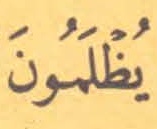 يُظْلَمُونَ